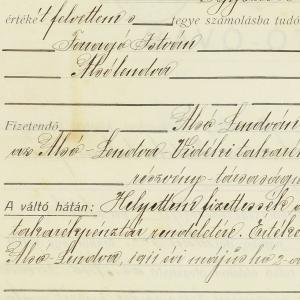 értékét felvettem s tegye számolásba tudó
István
Alsólendva
Fizetendő Alsó-Lendván
az Alsó-Lendva-Vidéki takaré
részvény-társaság
A váltó hátán: Helyettem fizettessék a
takarékpénztár rendeletére. Értéke
Alsó-Lendva, 1911 évi május hó 2-á